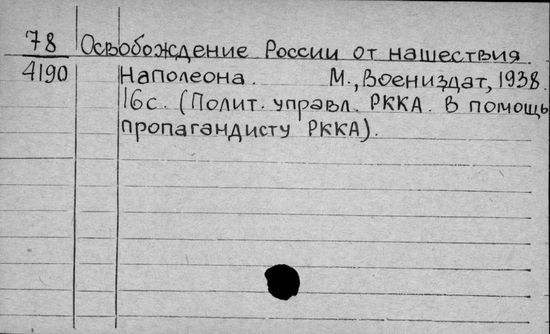 78 Освобождение России от нашествия
4190 Наполеона. М., Воениздат, 1938.
16с. (Полит. управл. РККА. В помощь
пропагандисту РККА).